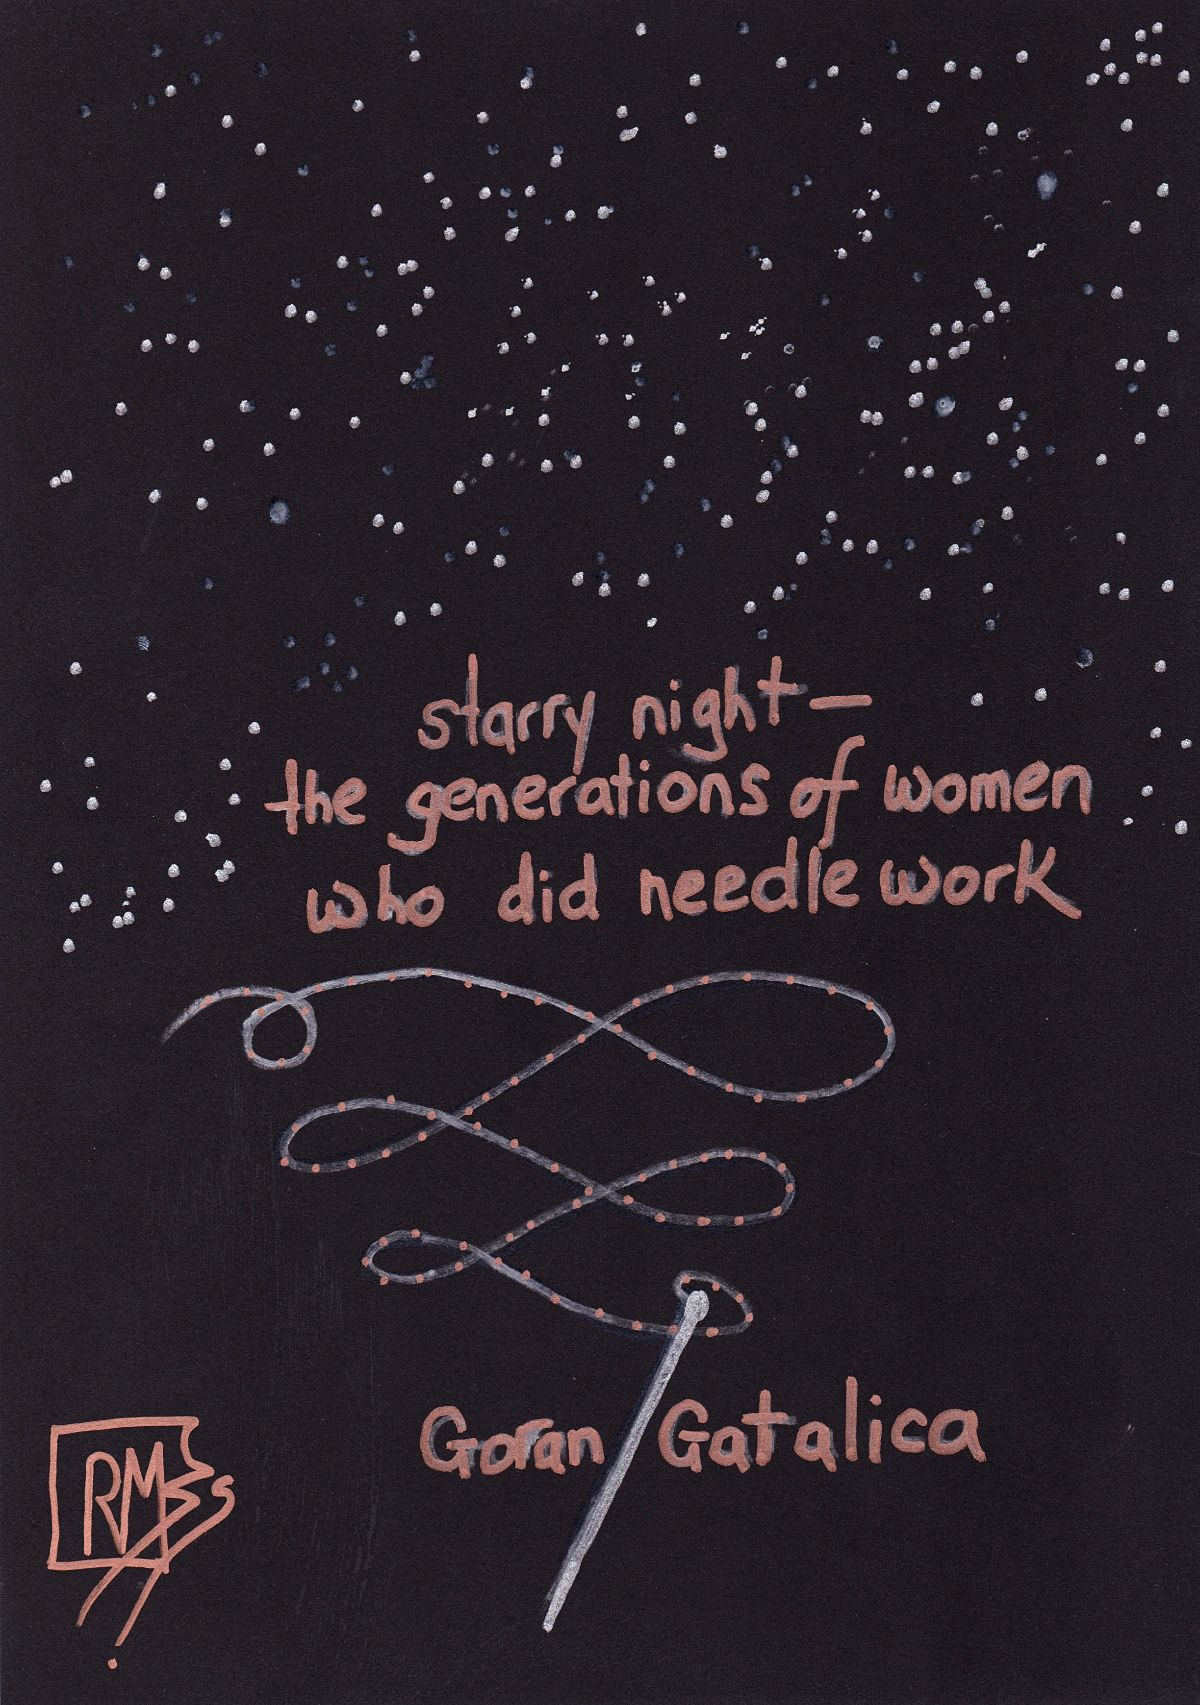 starry night—
the generations of women
who did needlework
Goran Gatalica